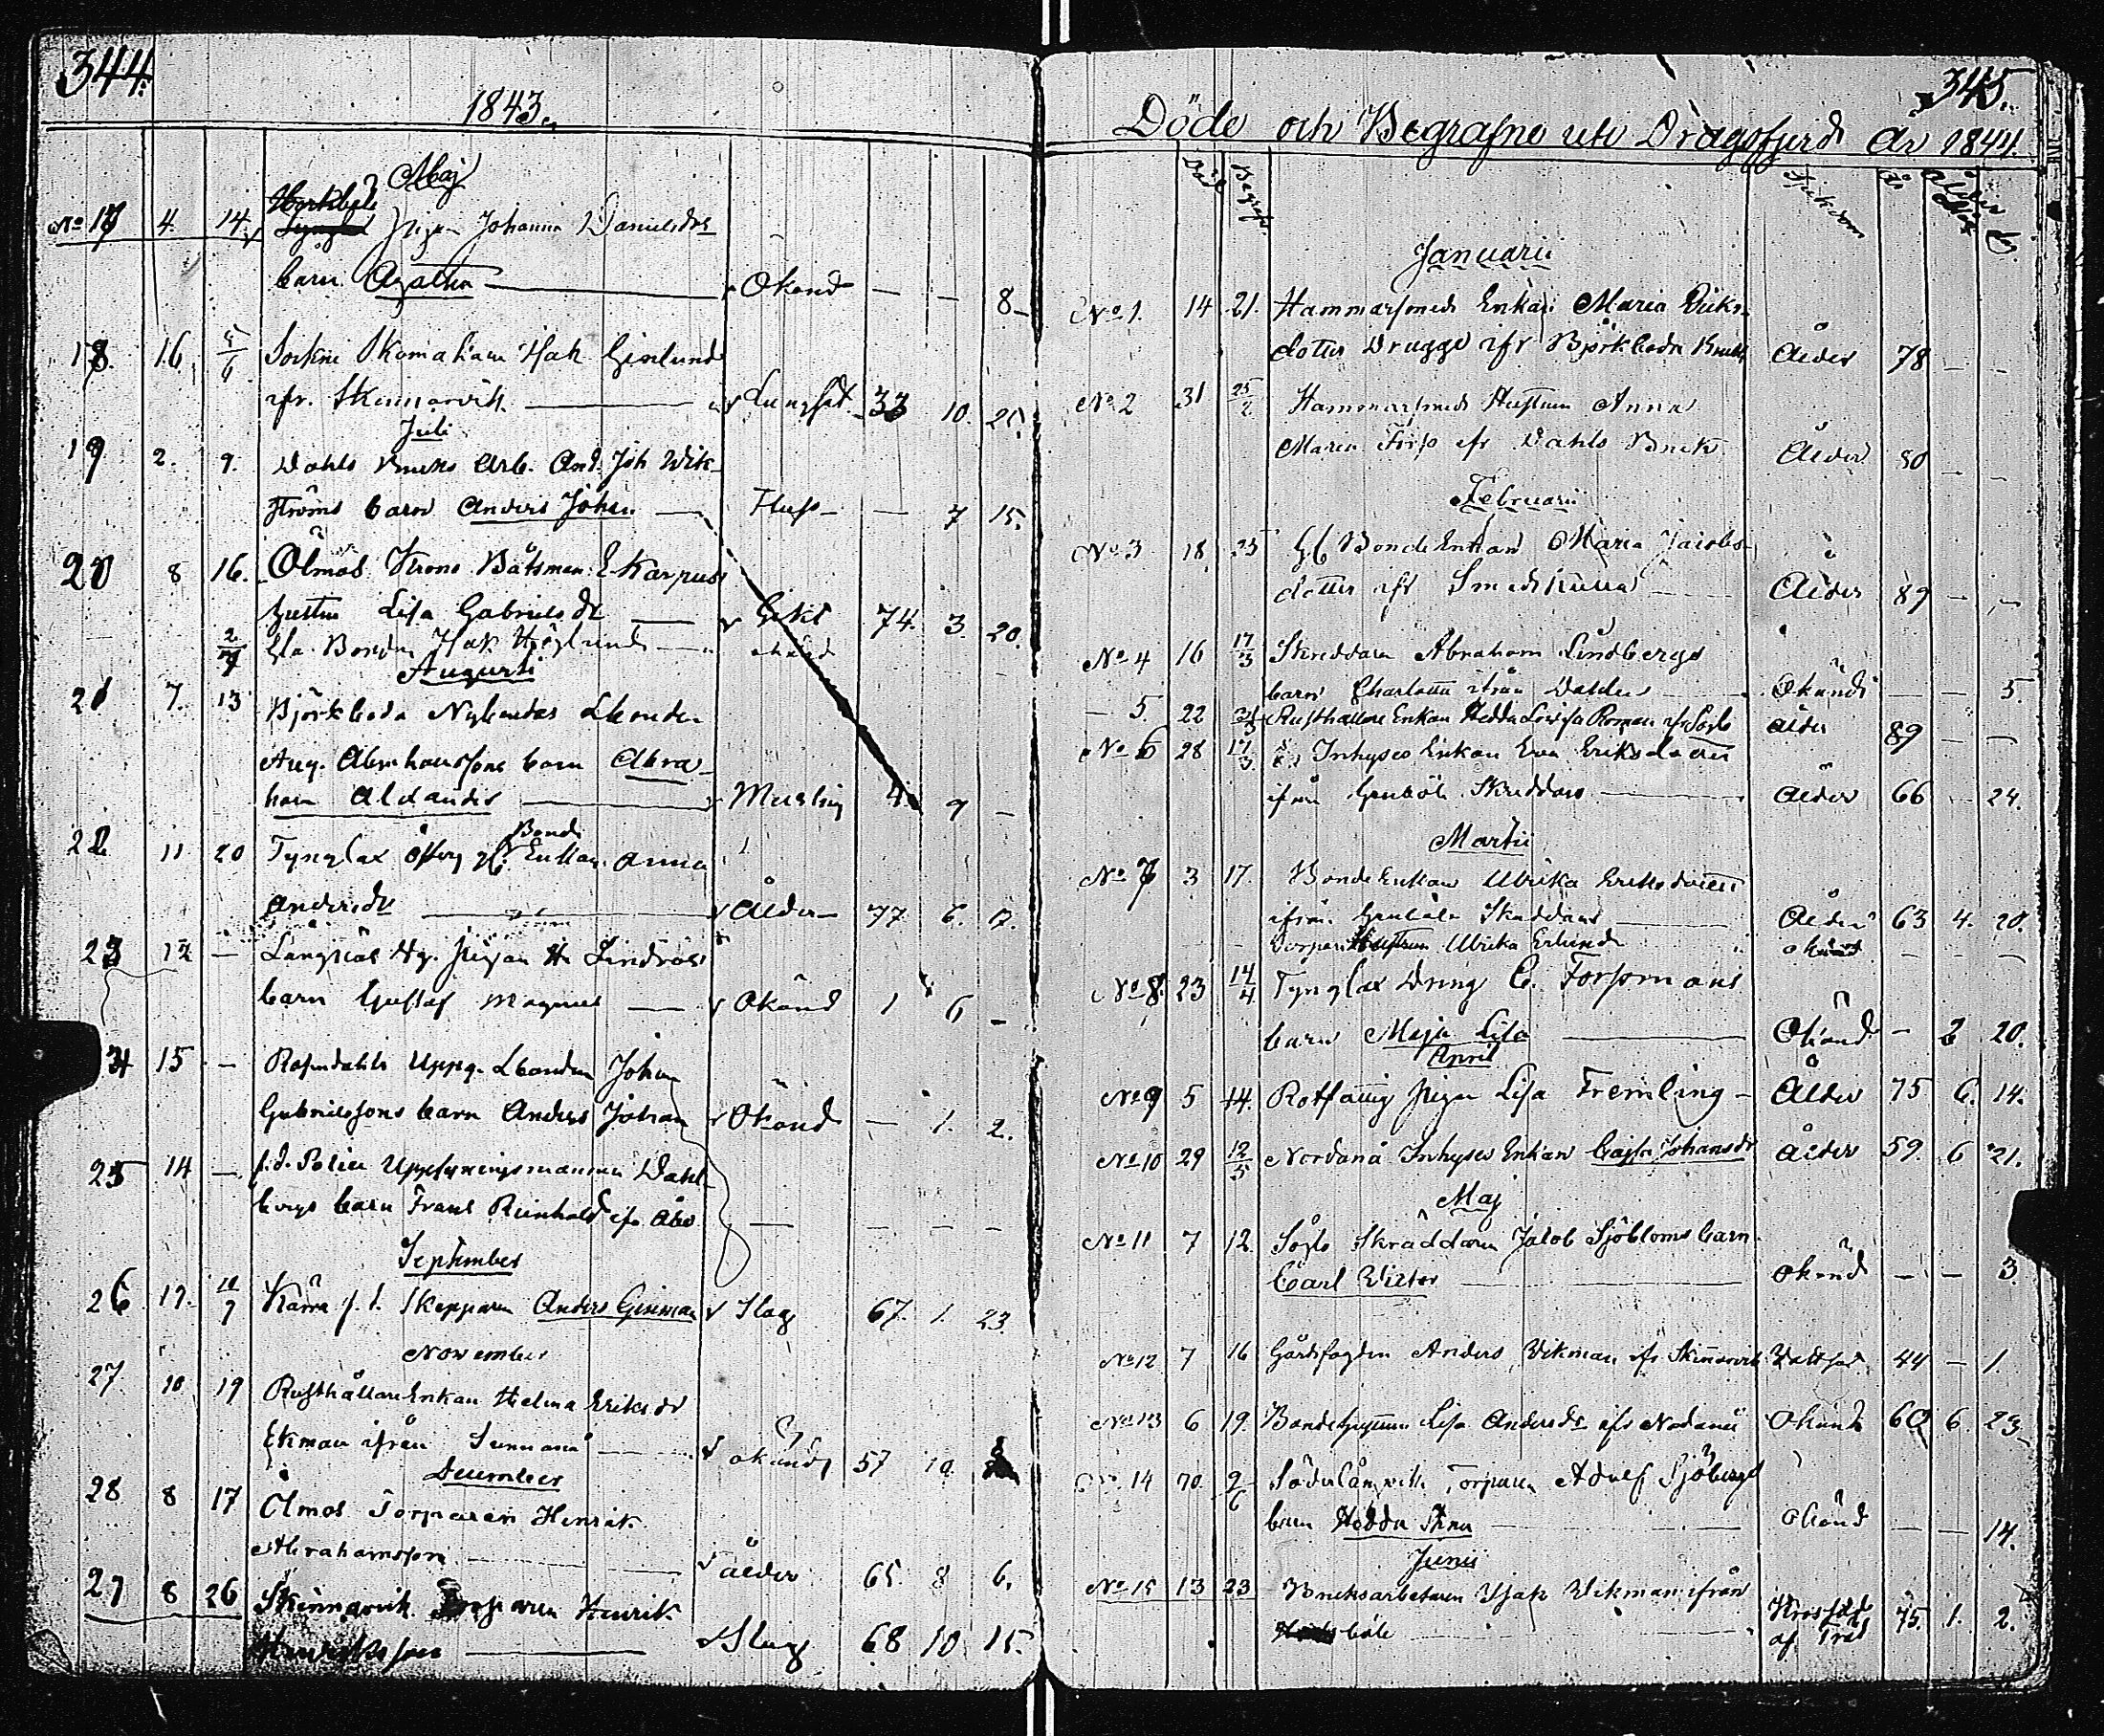 344.
1843.
Maj
No 17 4. 14. Pigan Johanna Danielsdr
barn Agatha Okänd — — 8
18. 16. 5/6 Sockne Skomakare Isak Genlund
ifr. Skinnarvik Lungsot 33 10. 25.
Juli
19 2. 9. Dahls Bruks Arb. And. Joh Wik-
ströms barn Anders Johan — Husp — 7 15.
20 8 16. Ölmos Krono Båtsman E. Karpus
hustru Lisa Gabrielsdr — 74. 3. 20.
2/7 Gla. Bonden Isak Höglund — okänd
Augusti
21 7. 13 Björkboda Nybondas Lbonden
Aug. Abrahamssons barn Abra-
ham Alexander Messling 4. 9 —
22 11 20 Tynglax Bonde Enkan Anna
Andersdr Ålder 77 6. 17.
23 12 — Långnäs Pigan H. Lindroos
barn Gustaf Magnus — Okänd 1 6 —
24 15 — Rosendahls Uppg. Lbonden Johan
Gabrielssons barn Anders Johan Okänd — 1. 2.
25 14 — f.d. Police Uppsyningsmannen Dahl-
bergs barn Frans Reinhold ifr. Åbo — — — —
September
26 17. 10/7 Kärra f.d. Skepparen Anders Genman Slag 67. 1. 23.
November
27. 10 19 Rusthållare Enkan Helena Eriksdr
Ekman ifrån Sunnanå okänd 57 10.
December
28 8 17 Ölmos Torparen Henrik
Abrahamsson ålder 65. 8 6.
29 8 26 Skinnarvik Torparen Henrik
Henriksson Slag 68 10 15.
345.
Döde och Begrafne uti Dragsfjerd År 1844.
Död Begrafn. Sjukdom Ålder
Januarii
No 1. 14 21. Hammarsmeds Enkan Maria Eriks-
dotter Drugge ifr Björkboda Bruk Ålder 78 — —
No 2 31 25/2 Hammarsmeds Hustrun Anna
Maria Forss ifr Dahls Bruk Ålder 80 — —
Februarii
No 3 18 25 Bonde Enkan Maria Jacobs-
dotter ifr Smedskulla Ålder 89 — —
No 4 16 17/3 Skreddare Abraham Lindbergs
barn Charlotta ifrån Dahls Okänd — — 5
— 5. 22 Rusthållare Enkan Hedda Lovisa Roman ifr Söglö ålder 89 — —
No 6 28 17/3 Inhyses Enkan Eva Eriksdotter
ifrån Genböle Skreddars Ålder 66 — 24.
Martii
No 7 3 17. Bonde Enkan Ulrika Eriksdotter
ifrån Genböle Skreddars Ålder 63 4. 20.
Torpare Hustrun Ulrika Erlund okänd — — —
No 8. 23 14/4 Tynglax Dreng C. Forssmans
barn Maja Lisa Okänd — 2 20.
April
No 9 5 14. Rotfattig Pigan Lisa Fremling — Ålder 75 6. 14.
No 10 29 12/5 Nordanå Inhyses Enkan Cajsa Johansdr Ålder 59. 6 21.
Maj
No 11 7 12. Söglö Skräddaren Jacob Sjöbloms barn
Carl Victor Okänd — — 3
No 12 7 16 Gårdsfogden Anders Wikman ifr Skinnarvik Wattsot 44 — 1.
No 13 6 19. Bondehustrun Lisa Andersdr ifr Nordanå Okänd 60 6. 23
No 14 20. 9/6 Söderlångvik Torparen Adolf Sjöbergs
barn Hedda Stina Okänd — — 14.
Junii
No 15 13 23 Bruksarbetaren Isak Wikman ifrån
böle Krossad af Träd 75. 1. 2.